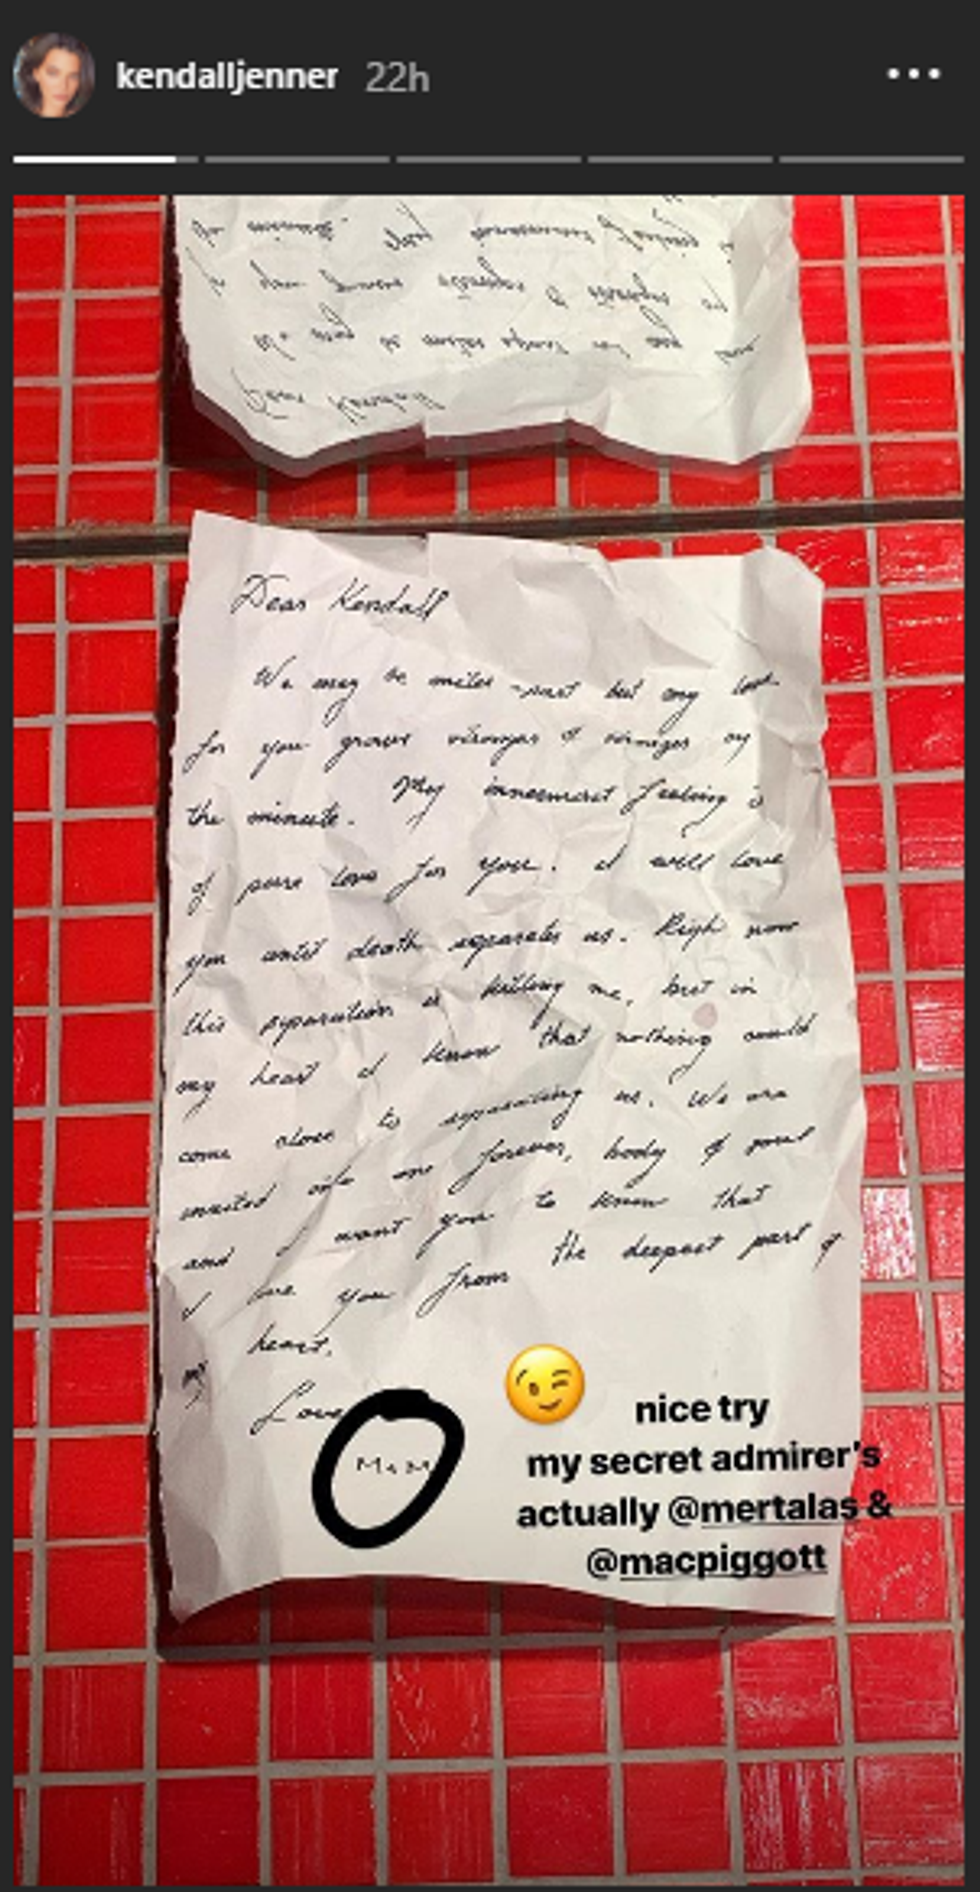 kendalljenner 22h
Dear Kendall
We may be miles apart but my love
for you grows stronger & stronger by
the minute. My innermost feeling is
of pure love for you. I will love
you until death separates us. Right now
this separation is killing me, but in
my heart I know that nothing could
come close to separating us. We are
united as one forever, body & soul
and I want you to know that
I love you from the deepest part of
my heart.
Love
M+M
nice try
my secret admirer's
actually @mertalas &
@macpiggott